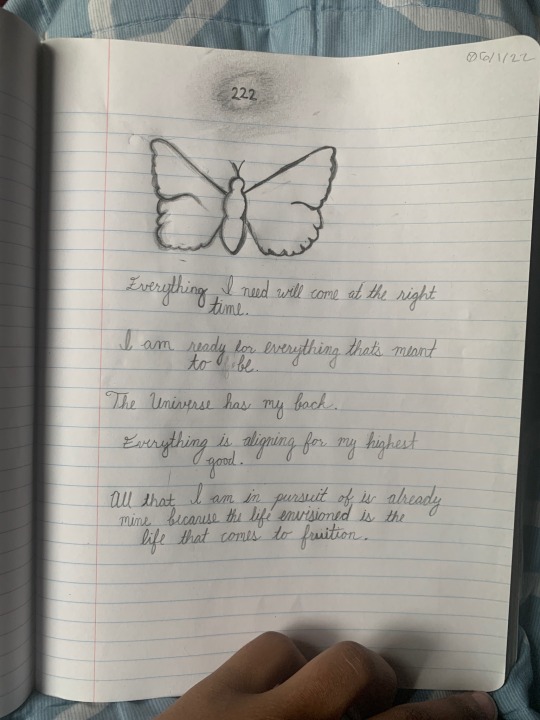 06/1/22
222
Everything I need will come at the right
time.
I am ready for everything that's meant
to be.
The Universe has my back.
Everything is aligning for my highest
good.
All that I am in pursuit of is already
mine because the life envisioned is the
life that comes to fruition.